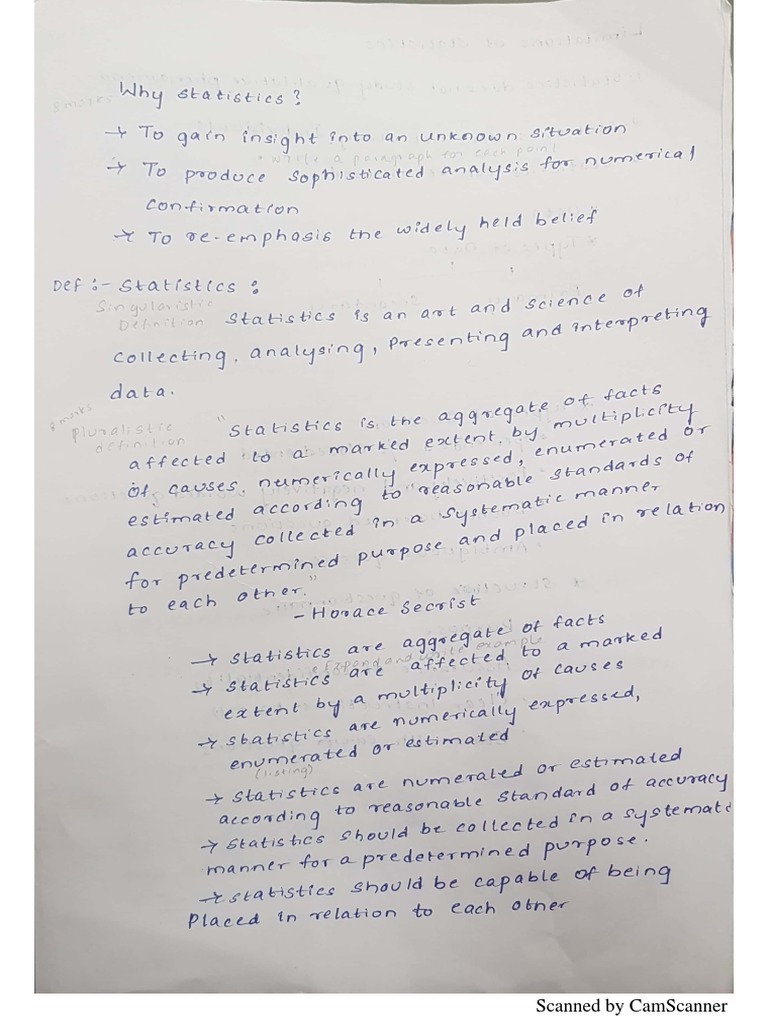 Why Statistics?
→ To gain insight into an unknown situation
→ To produce sophisticated analysis for numerical
confirmation
→ To re-emphasis the widely held belief
Def :- Statistics :
Singularistic
Definition Statistics is an art and science of
collecting, analysing, presenting and interpreting
data.
Pluralistic
definition
"Statistics is the aggregate of facts
affected to a marked extent by multiplicity
of causes, numerically expressed, enumerated or
estimated according to reasonable standards of
accuracy collected in a systematic manner
for predetermined purpose and placed in relation
to each other."
- Horace Secrist
→ Statistics are aggregate of facts
→ Statistics are affected to a marked
extent by a multiplicity of causes
→ Statistics are numerically expressed,
enumerated or estimated
(listing)
→ Statistics are numerated or estimated
according to reasonable standard of accuracy
→ Statistics should be collected in a systemati
manner for a predetermined purpose.
→ Statistics should be capable of being
Placed in relation to each other
Scanned by CamScanner